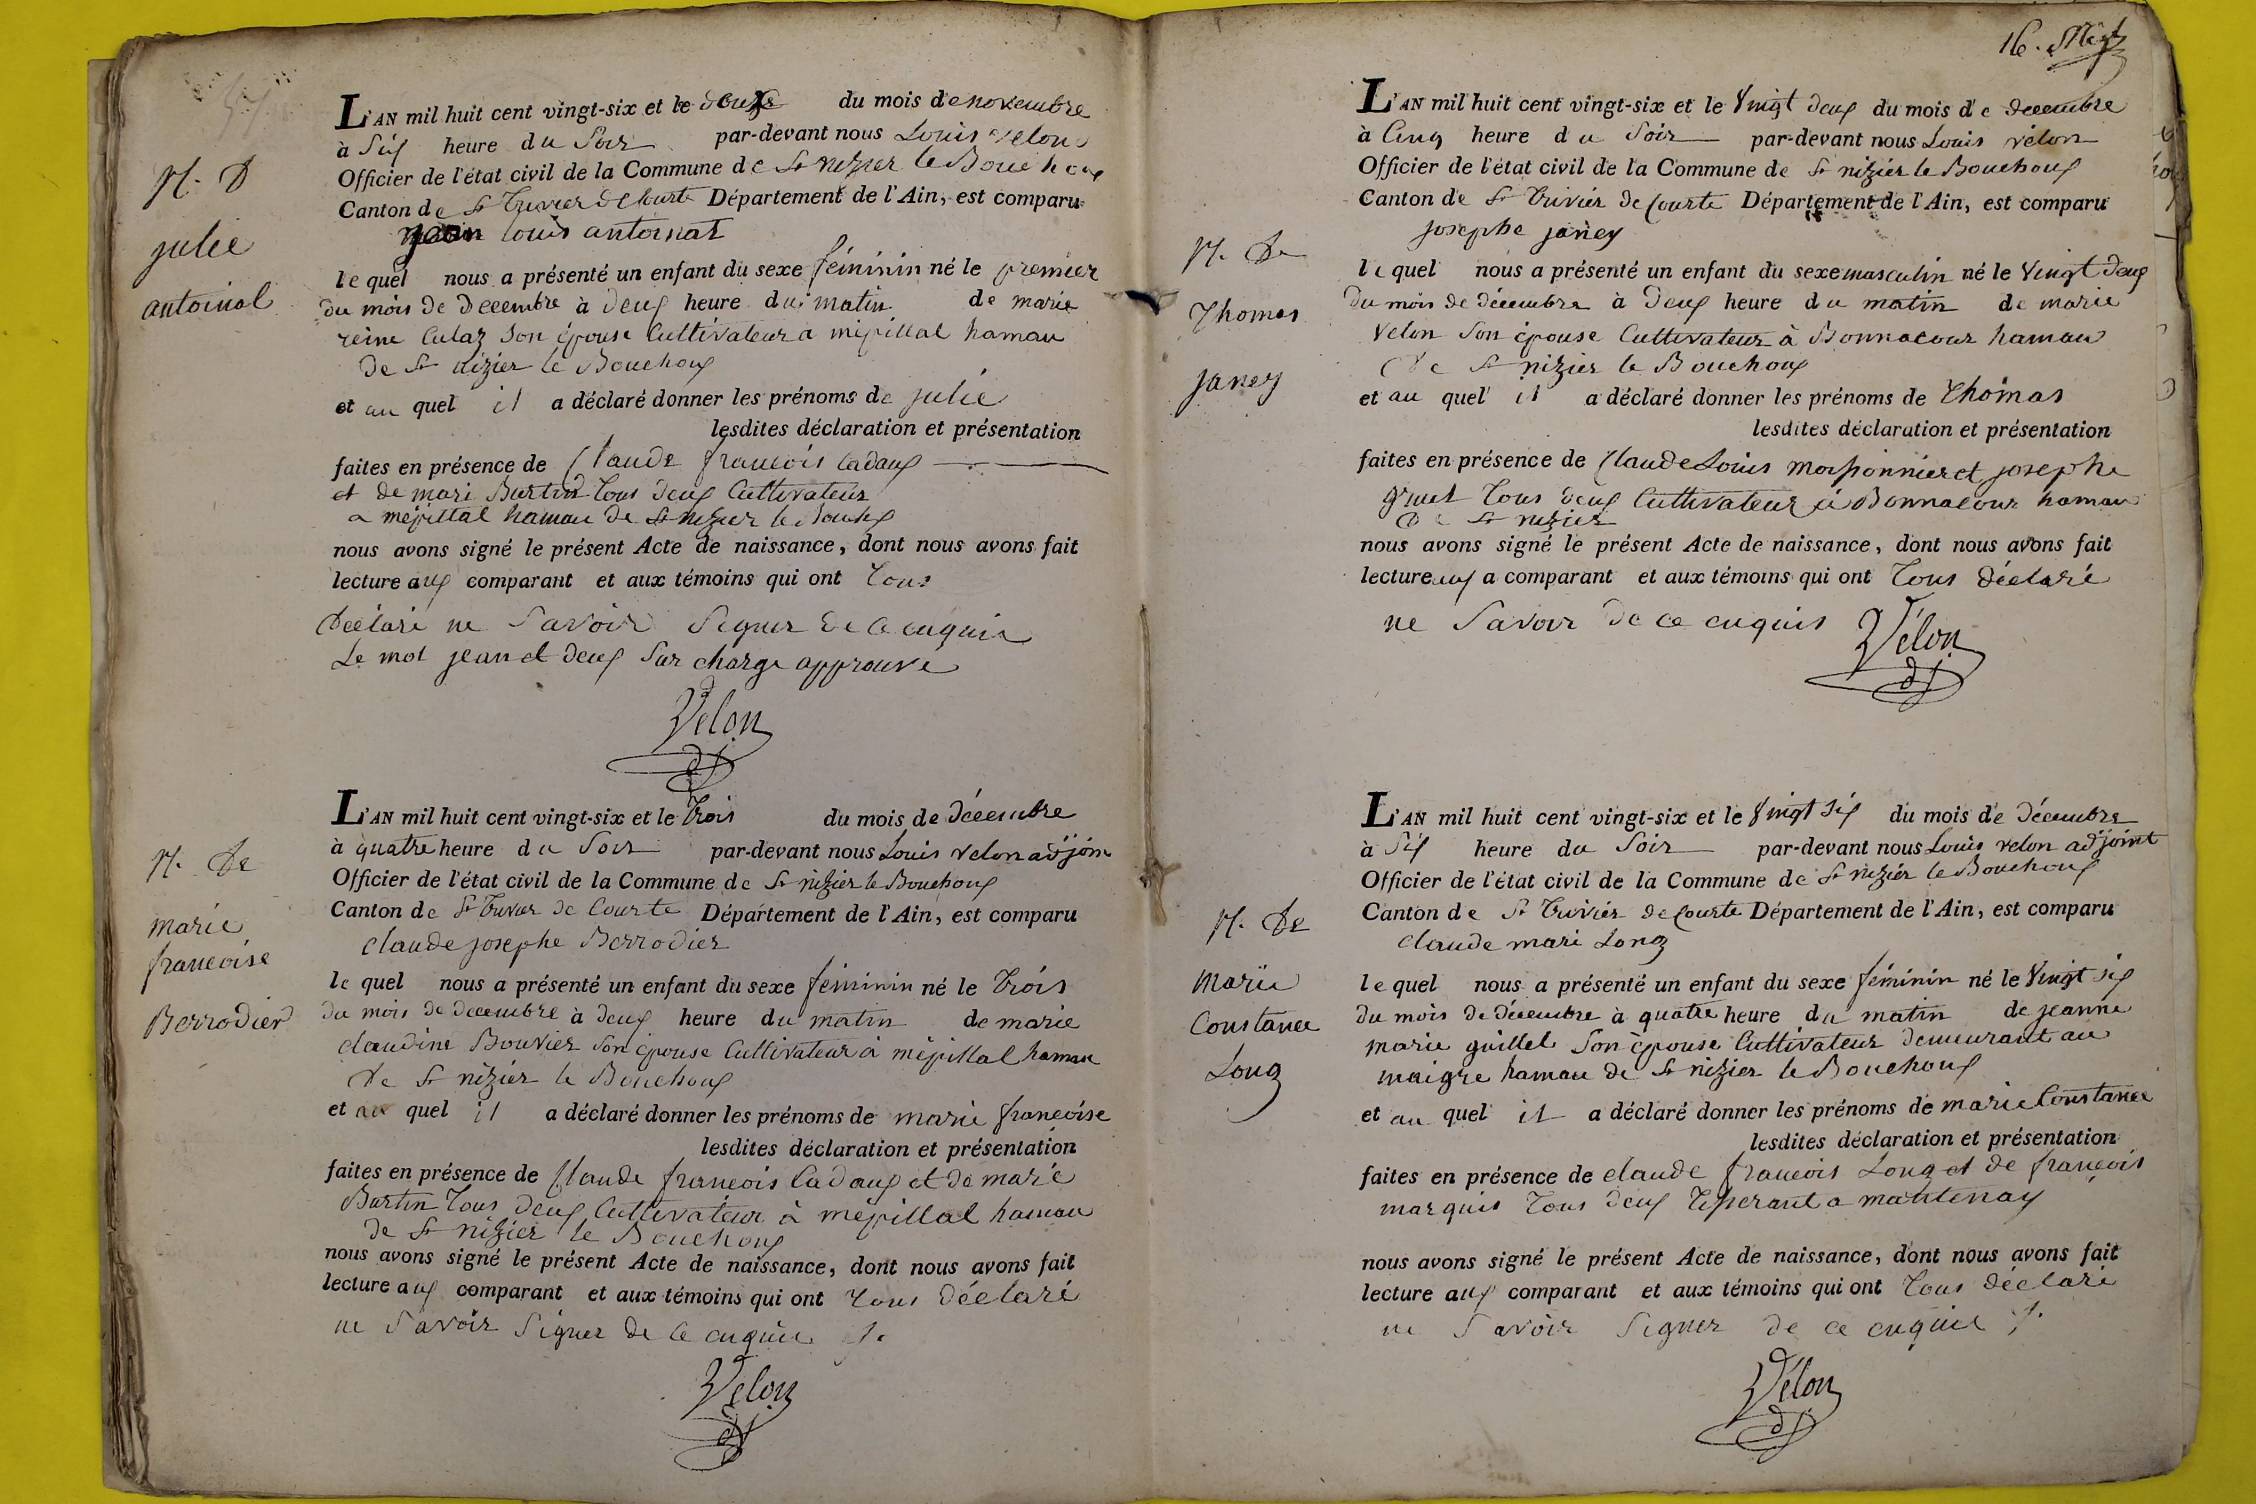 N. D
julie
antoinat
L'AN mil huit cent vingt-six et le deux du mois de novembre
à Six heure du Soir par-devant nous Louis velon
Officier de l'état civil de la Commune de St nizier le Bouchoux
Canton de St Trivier de Courte Département de l'Ain, est comparu
jean louis antoinat
le quel nous a présenté un enfant du sexe féminin né le premier
du mois de Decembre à deux heure du matin de marie
reine Culaz Son épouse Cultivateur a mépillat hamau
de St nizier le Bouchoux
et au quel il a déclaré donner les prénoms de julie
lesdites déclaration et présentation
faites en présence de Claude francois Cadoux
et de mari Burtin Tous deux Cultivateur
a mépillat hamau de St nizier le Bouchx
nous avons signé le présent Acte de naissance, dont nous avons fait
lecture aux comparant et aux témoins qui ont Tous
Déclaré ne Savoir Signer de ce enquis
Le mot jean et deux Sur charge approuvé
Velon
dj
N. De
marie
francoise
Berrodier
L'AN mil huit cent vingt-six et le Trois du mois de décembre
à quatre heure du Soir par-devant nous Louis velon adjoin
Officier de l'état civil de la Commune de St nizier le Bouchoux
Canton de St Trivier de Courte Département de l'Ain, est comparu
claude josephe Berrodier
le quel nous a présenté un enfant du sexe féminin né le Trois
du mois de decembre à deux heure du matin de marie
claudine Bouvier son épouse Cultivateur à mépillat hamau
de St nizier le Bouchoux
et au quel il a déclaré donner les prénoms de marie francoise
lesdites déclaration et présentation
faites en présence de Claude francois Cadoux et de marie
Burtin Tous deux Cultivateur à mépillat hamau
de St nizier le Bouchoux
nous avons signé le présent Acte de naissance, dont nous avons fait
lecture aux comparant et aux témoins qui ont Tous déclaré
ne Savoir Signer de ce enquis
Velon
dj
16.
N. De
Thomas
janey
L'AN mil huit cent vingt-six et le Vingt deux du mois de decembre
à Cinq heure du Soir par-devant nous Louis velon
Officier de l'état civil de la Commune de St nizier le Bouchoux
Canton de St Trivier de Courte Département de l'Ain, est comparu
josephe janey
le quel nous a présenté un enfant du sexe masculin né le Vingt deux
du mois de décembre à deux heure du matin de marie
velon Son épouse Cultivateur à Bonnacour hamau
De St nizier le Bouchoux
et au quel il a déclaré donner les prénoms de Thomas
lesdites déclaration et présentation
faites en présence de Claude Louis moissonnier et josephe
gruet Tous deux Cultivateur à Bonnacour hamau
De St nizier
nous avons signé le présent Acte de naissance, dont nous avons fait
lecture aux a comparant et aux témoins qui ont Tous déclaré
ne Savoir de ce enquis
Velon
dj
N. De
Marie
Constance
Long
L'AN mil huit cent vingt-six et le Vingt Six du mois de décembre
à Six heure du Soir par-devant nous Louis velon adjoint
Officier de l'état civil de la Commune de St nizier le Bouchoux
Canton de St Trivier de Courte Département de l'Ain, est comparu
claude mari Long
le quel nous a présenté un enfant du sexe féminin né le Vingt Six
du mois de décembre à quatre heure du matin de jeanne
marie guillet Son épouse Cultivateur demeurant au
maigre hamau de St nizier le Bouchoux
et au quel il a déclaré donner les prénoms de marie Constance
lesdites déclaration et présentation
faites en présence de claude francois Long et de francois
marquis Tous deux Tisserant a mantenay
nous avons signé le présent Acte de naissance, dont nous avons fait
lecture aux comparant et aux témoins qui ont Tous déclaré
ne Savoir Signer de ce enquis
Velon
dj